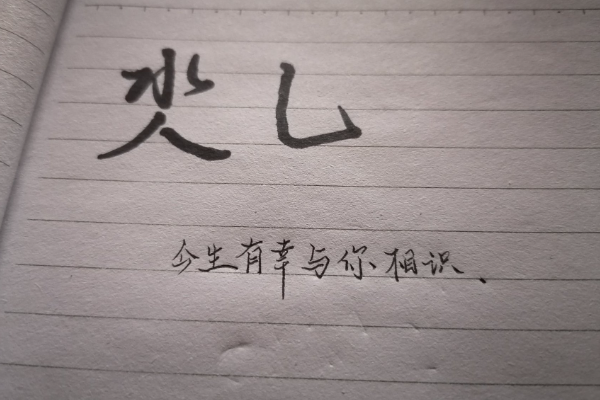 氼乚
今生有幸与你相识、